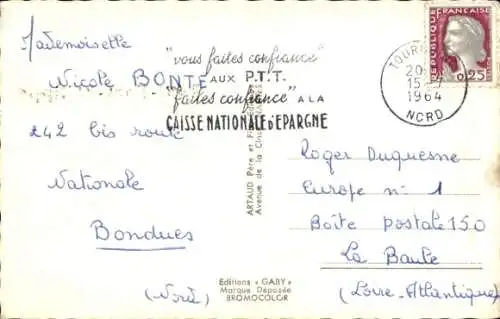 Mademoiselle
Nicole BONTE
242 bis route
Nationale
Bondues
(Nord)
"vous faites confiance"
AUX P.T.T.
"faites confiance" A LA
CAISSE NATIONALE d'EPARGNE
20
15
1964
NORD
REPUBLIQUE FRANÇAISE
0,25
ARTAUD Père et
Avenue de la
Editions « GABY »
Marque Déposée
BROMOCOLOR
Roger Duquesne
Europe n° 1
Boîte postale 150
La Baule
(Loire-Atlantique)